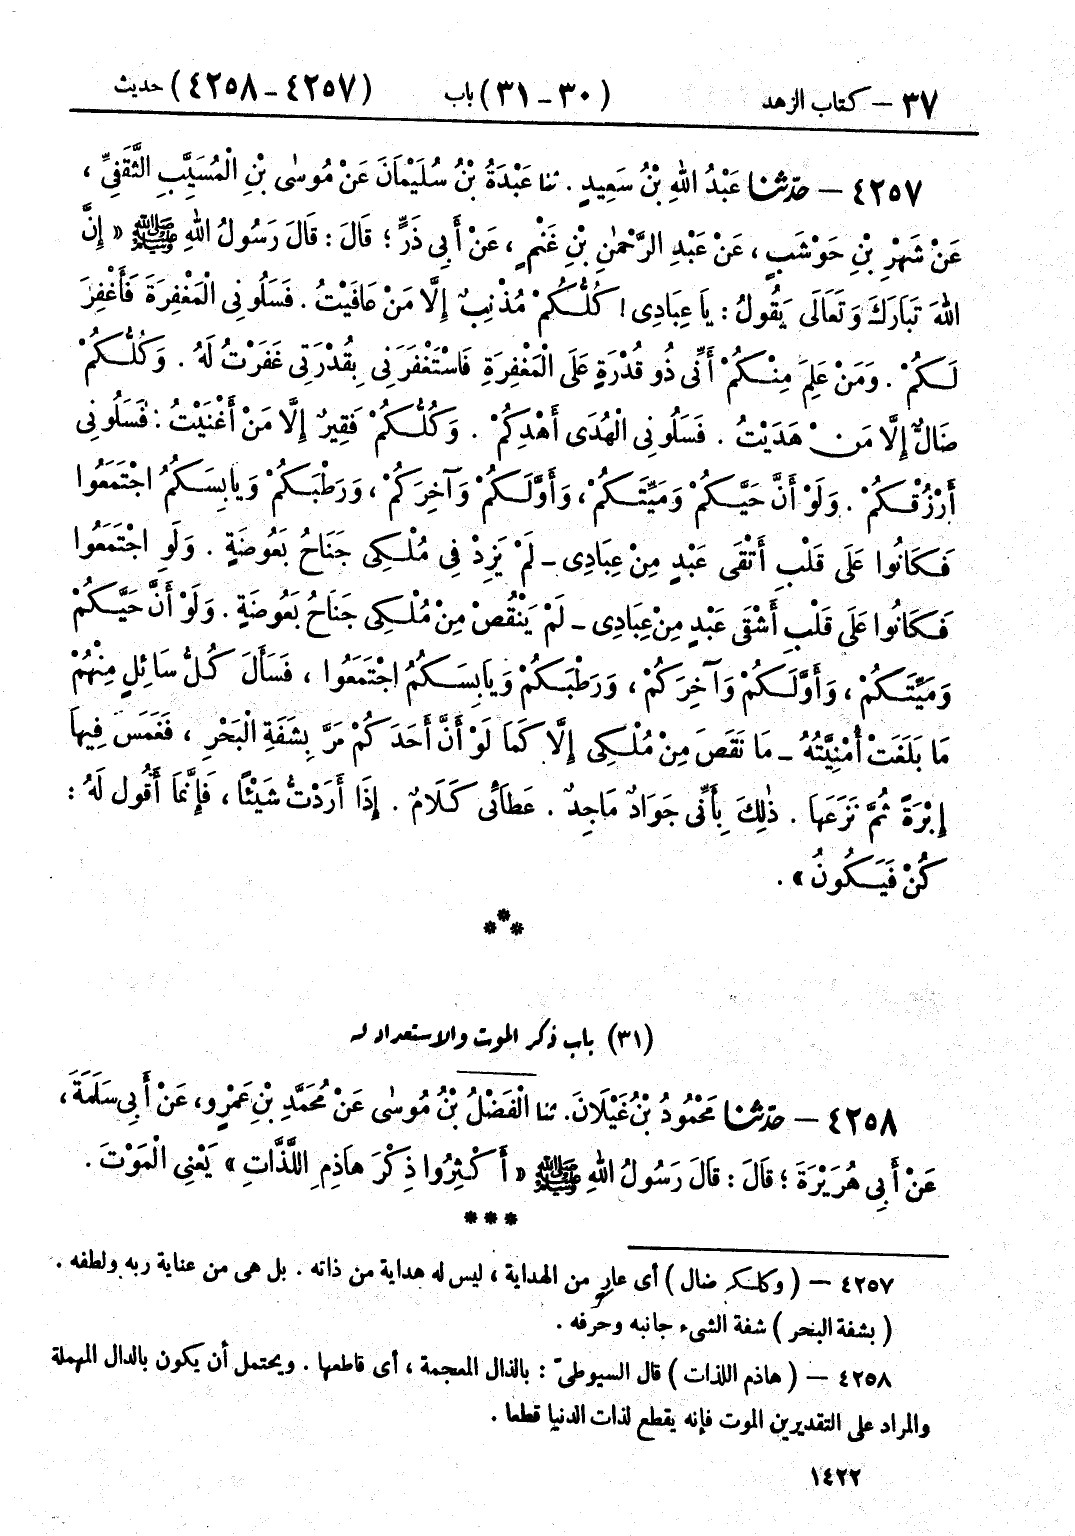 ٣٧ – كتاب الزهد (٣٠ – ٣١) باب (٤٢٥٧ – ٤٢٥٨) حديث
٤٢٥٧ – حدّثنا عَبْدُ اللهِ بْنُ سَعِيدٍ . ثنا عَبْدَةُ بْنُ سُلَيْمَانَ عَنْ مُوسٰى بْنِ الْمُسَيَّبِ الثَّقَفِيِّ ،
عَنْ شَهْرِ بْنِ حَوْشَبٍ ، عَنْ عَبْدِ الرَّحْمٰنِ بْنِ غَنْمٍ ، عَنْ أَبِي ذَرٍّ ؛ قَالَ : قَالَ رَسُولُ اللهِ ﷺ « إِنَّ
اللهَ تَبَارَكَ وَتَعَالَى يَقُولُ : يَا عِبَادِى ! كُلُّكُمْ مُذْنِبٌ إِلَّا مَنْ عَافَيْتُ . فَسَلُونِى الْمَغْفِرَةَ فَأَغْفِرَ
لَكُمْ . وَمَنْ عَلِمَ مِنْكُمْ أَنِّى ذُو قُدْرَةٍ عَلَى الْمَغْفِرَةِ فَاسْتَغْفَرَنِى بِقُدْرَتِى غَفَرْتُ لَهُ . وَكُلُّكُمْ
ضَالٌّ إِلَّا مَنْ هَدَيْتُ . فَسَلُونِى الْهُدَى أَهْدِكُمْ . وَكُلُّكُمْ فَقِيرٌ إِلَّا مَنْ أَغْنَيْتُ : فَسَلُونِى
أَرْزُقْكُمْ . وَلَوْ أَنَّ حَيَّكُمْ وَمَيِّتَكُمْ ، وَأَوَّلَكُمْ وَآخِرَكُمْ ، وَرَطْبَكُمْ وَيَابِسَكُمُ اجْتَمَعُوا
فَكَانُوا عَلَى قَلْبِ أَتْقَى عَبْدٍ مِنْ عِبَادِى – لَمْ يَزِدْ فِى مُلْكِى جَنَاحُ بَعُوضَةٍ . وَلَوِ اجْتَمَعُوا
فَكَانُوا عَلَى قَلْبِ أَشْقَى عَبْدٍ مِنْ عِبَادِى – لَمْ يَنْقُصْ مِنْ مُلْكِى جَنَاحُ بَعُوضَةٍ . وَلَوْ أَنَّ حَيَّكُمْ
وَمَيِّتَكُمْ ، وَأَوَّلَكُمْ وَآخِرَكُمْ ، وَرَطْبَكُمْ وَيَابِسَكُمُ اجْتَمَعُوا ، فَسَأَلَ كُلُّ سَائِلٍ مِنْهُمْ
مَا بَلَغَتْ أُمْنِيَّتُهُ – مَا نَقَصَ مِنْ مُلْكِى إِلَّا كَمَا لَوْ أَنَّ أَحَدَكُمْ مَرَّ بِشَفَةِ الْبَحْرِ ، فَغَمَسَ فِيهَا
إِبْرَةً ثُمَّ نَزَعَهَا . ذٰلِكَ بِأَنِّى جَوَادٌ مَاجِدٌ . عَطَائِى كَلَامٌ . إِذَا أَرَدْتُ شَيْئًا ، فَإِنَّمَا أَقُولُ لَهُ :
كُنْ فَيَكُونُ » .
***
(٣١) باب ذكر الموت والاستعداد له
٤٢٥٨ – حدّثنا مَحْمُودُ بْنُ غَيْلَانَ. ثنا الْفَضْلُ بْنُ مُوسٰى عَنْ مُحَمَّدِ بْنِ عَمْرٍو، عَنْ أَبِى سَلَمَةَ ،
عَنْ أَبِى هُرَيْرَةَ ؛ قَالَ : قَالَ رَسُولُ اللهِ ﷺ « أَكْثِرُوا ذِكْرَ هَاذِمِ اللَّذَّاتِ » يَعْنِى الْمَوْتَ .
***
٤٢٥٧ – ( وكلكم ضال ) أى عار من الهداية ، ليس له هداية من ذاته . بل هى من عناية ربه ولطفه .
( بشفة البحر ) شفة الشىء جانبه وحرفه .
٤٢٥٨ – ( هاذم اللذات ) قال السيوطىّ : بالذال المعجمة ، أى قاطعها . ويحتمل أن يكون بالدال المهملة
والمراد على التقديرين الموت فإنه يقطع لذات الدنيا قطعا .
١٤٢٢